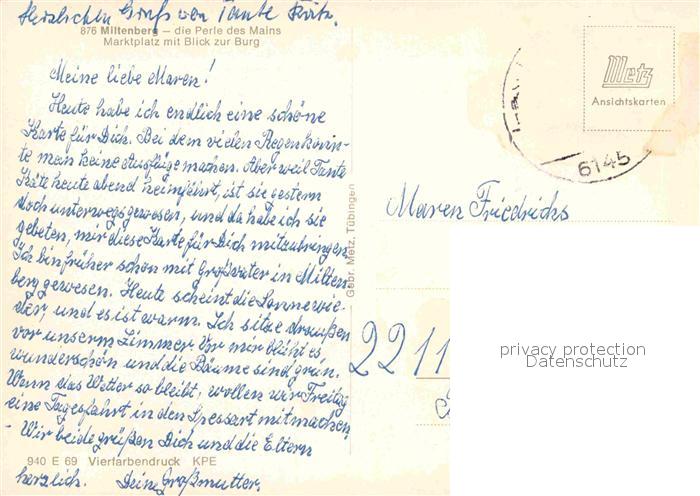 Herzlichen Gruß von Tante Käte.
876 Miltenberg – die Perle des Mains
Marktplatz mit Blick zur Burg
Meine liebe Maren!
Heute habe ich endlich eine schöne
Karte für Dich. Bei dem vielen Regen konn-
te man keine Ausflüge machen. Aber weil Tante
Käte heute abend heimfährt, ist sie gestern
doch unterwegs gewesen, und da habe ich sie
gebeten, mir diese Karte für Dich mitzubringen.
Ich bin früher schon mit Großvater in Milten
berg gewesen. Heute scheint die Sonne wie-
der, und es ist warm. Ich sitze draußen
vor unserm Zimmer. Vor mir blüht es
wunderschön und die Bäume sind grün.
Wenn das Wetter so bleibt, wollen wir Freitag
eine Tagesfahrt in den Spessart mitmachen
- Wir beide grüßen Dich und die Eltern
940 E 69 Vierfarbendruck KPE
herzlich. Deine Großmutter.
Gebr. Metz, Tübingen
Metz
Ansichtskarten
6145
Maren Friedrichs
2211
privacy protection
Datenschutz